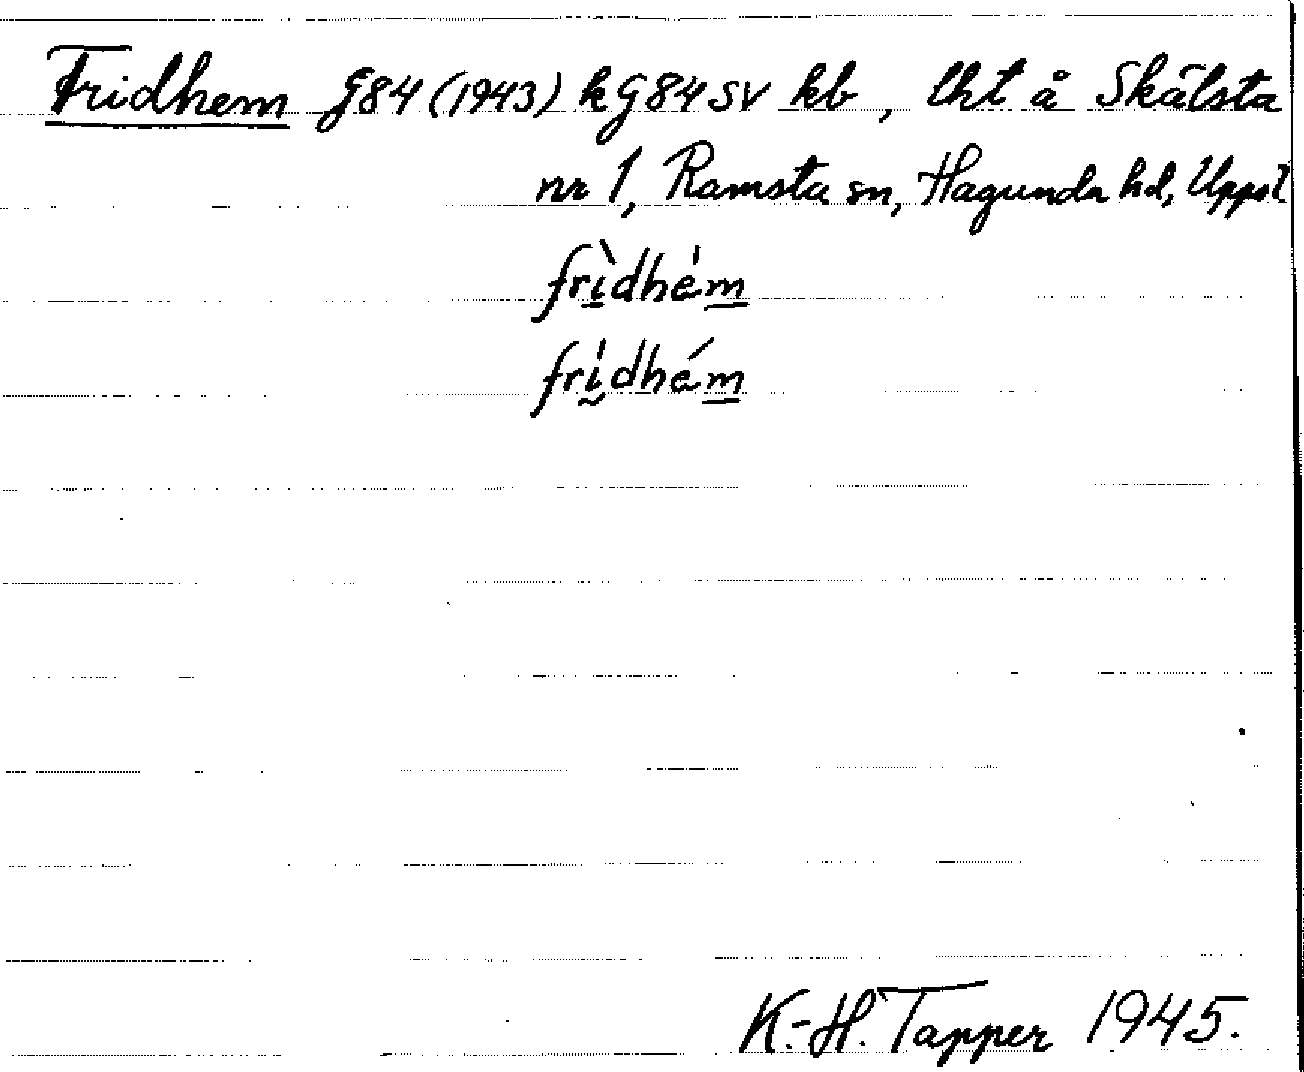 Fridhem G84 (1943) k G84 SV kb, lht å Skälsta
nr 1, Ramsta sn, Hagunda hd, Uppsl
frìdhém
frídhém
K.-H. Tapper 1945.